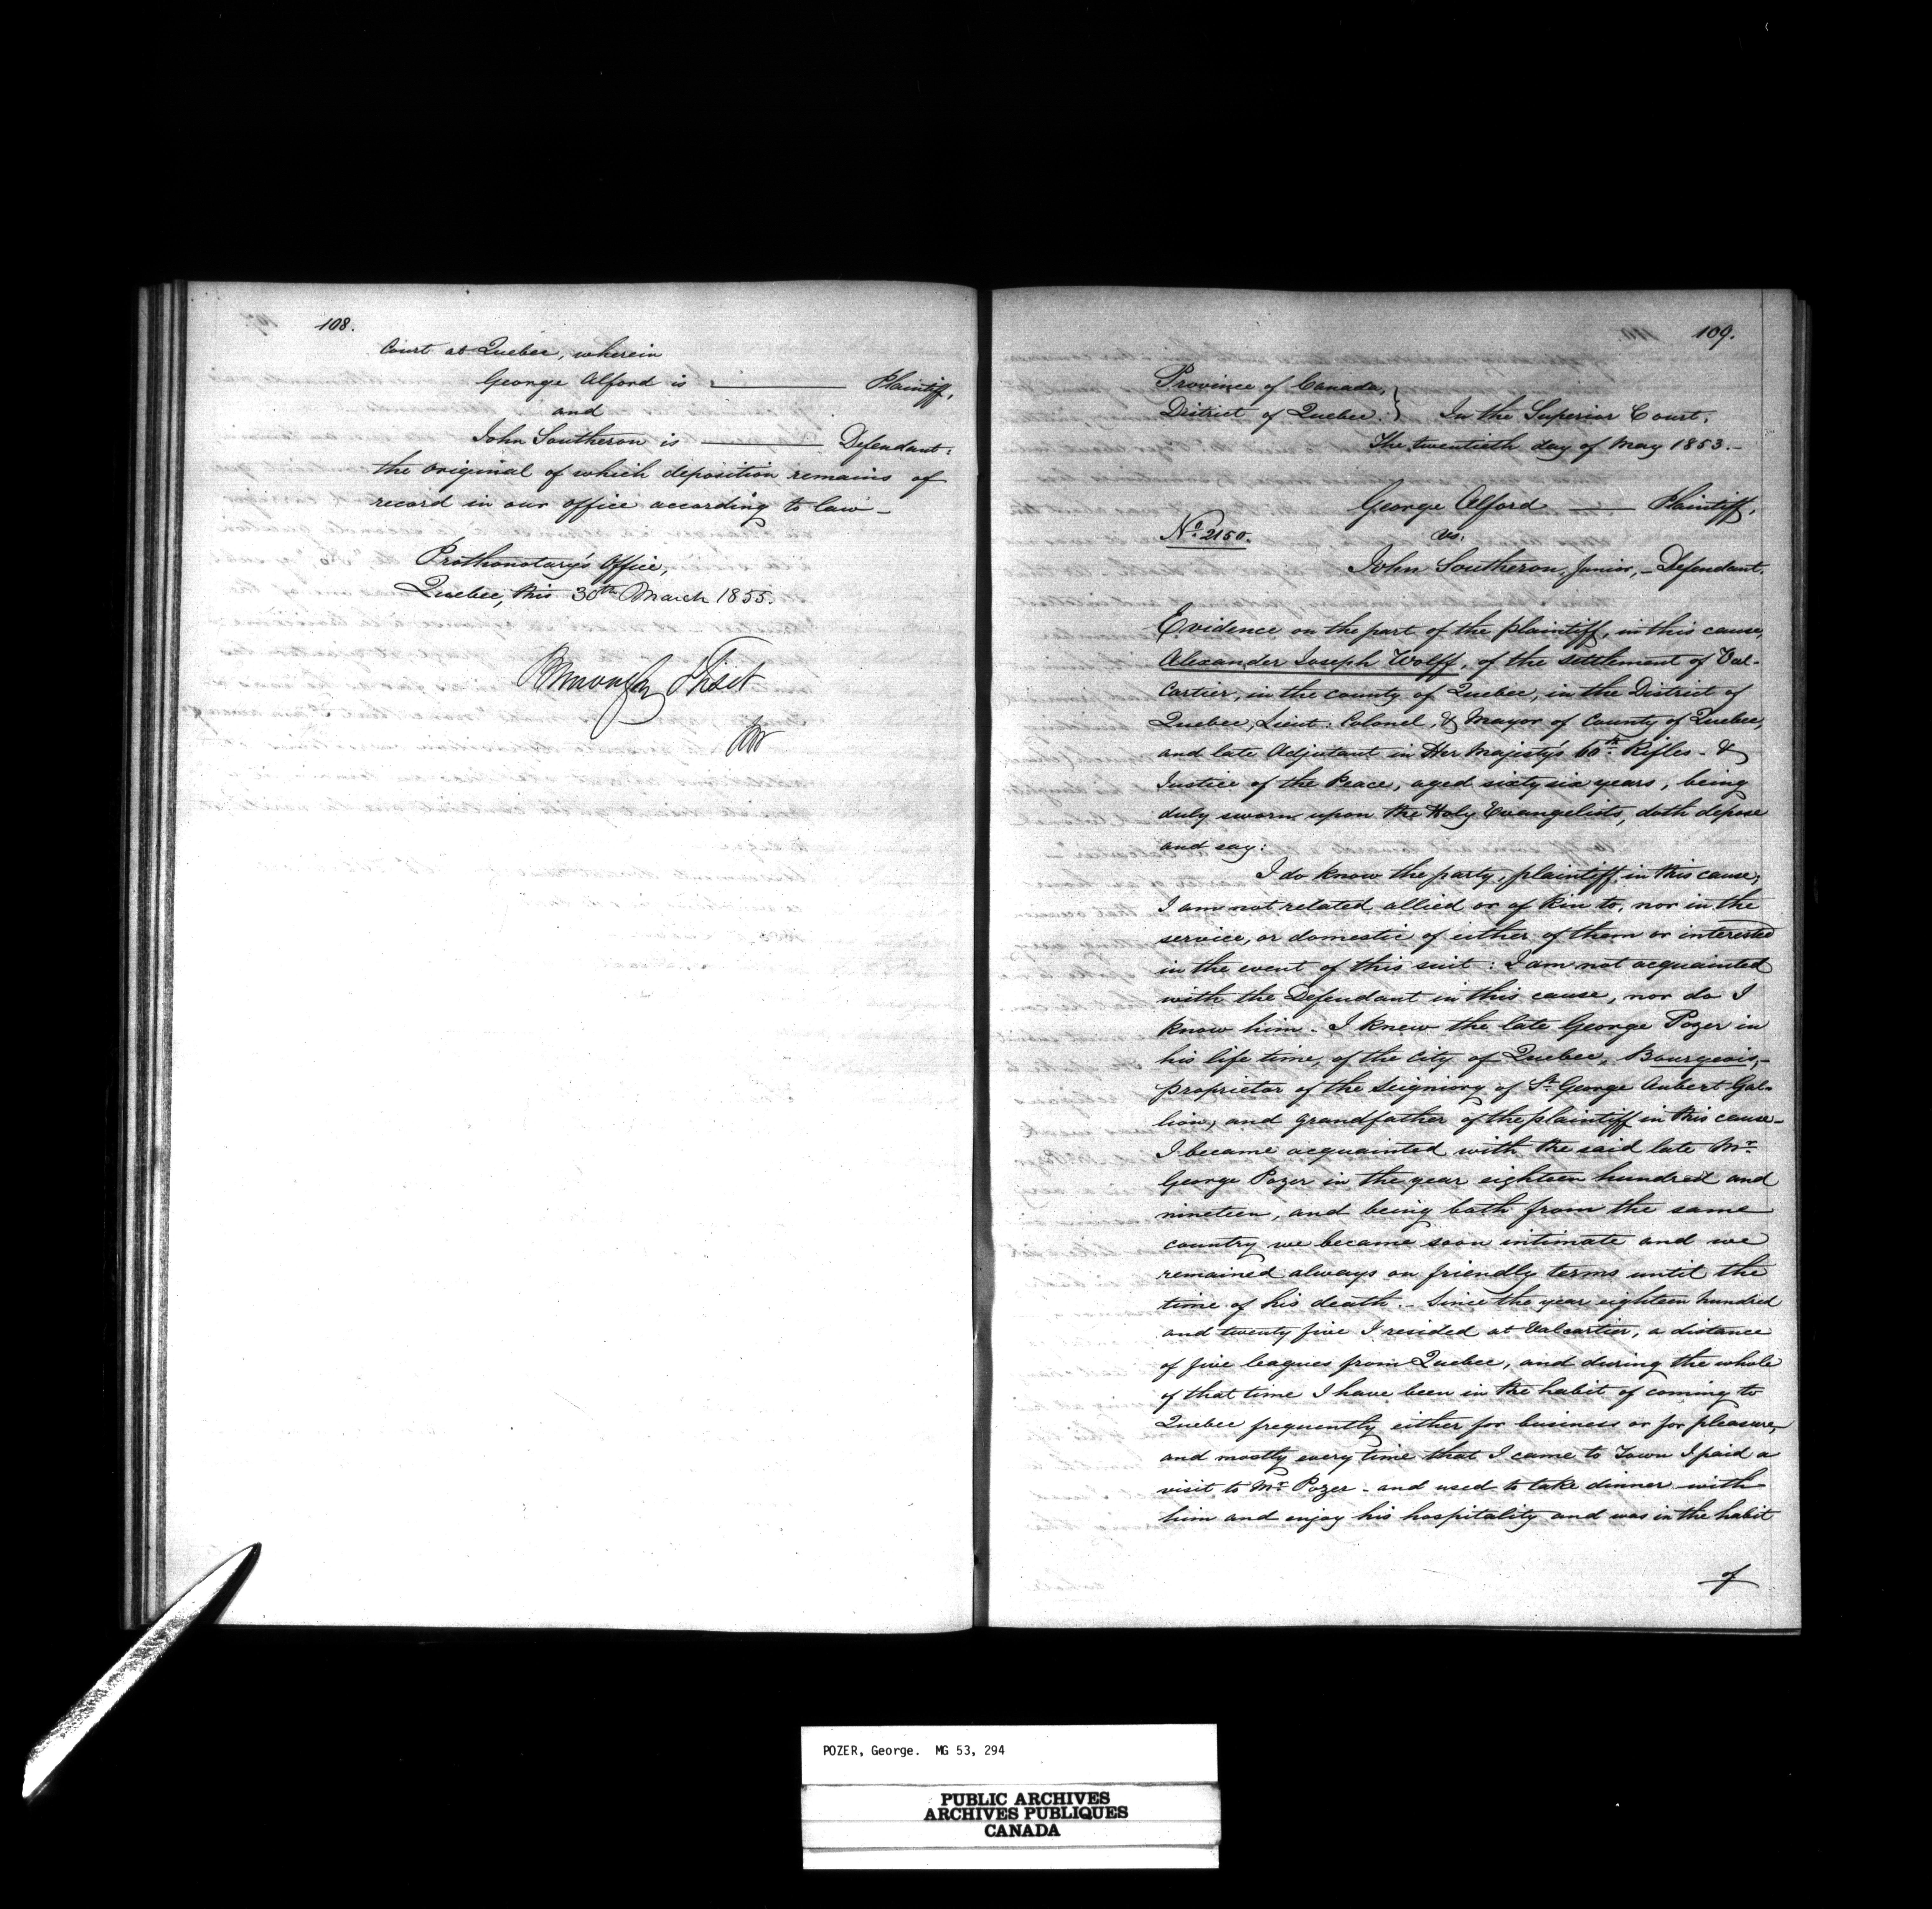 108.
Court at Quebec, wherein
George Alford is Plaintiff,
and
John Southeron is Defendant:
the original of which deposition remains of
record in our office according to law -
Prothonotary's Office,
Quebec, this 30th March 1855.
Burroughs Fiset
109.
Province of Canada,
District of Quebec. } In the Superior Court.
The twentieth day of May 1853. -
George Alford Plaintiff,
No. 2150. vs.
John Southeron, Junior, - Defendant.
Evidence on the part of the plaintiff, in this cause,
Alexander Joseph Wolff, of the settlement of Val-
cartier, in the county of Quebec, in the District of
Quebec, Lieut: Colonel, & Mayor of County of Quebec,
and late Adjutant in Her Majesty's 60th Rifles - &
Justice of the Peace, aged sixty six years, being
duly sworn upon the Holy Evangelists, doth depose
and say:
I do know the party, plaintiff, in this cause,
I am not related, allied or of kin to, nor in the
service, or domestic of either of them or interested
in the event of this suit: I am not acquainted
with the Defendant in this cause, nor do I
know him. I knew the late George Pozer in
his life time, of the City of Quebec, Bourgeois, -
proprietor of the Seigniory of St. George Aubert Gal-
lion, and grandfather of the plaintiff in this cause -
I became acquainted with the said late Mr.
George Pozer in the year eighteen hundred and
nineteen, and being both from the same
country we became soon intimate and we
remained always on friendly terms until the
time of his death. - Since the year eighteen hundred
and twenty five I resided at Valcartier, a distance
of five leagues from Quebec, and during the whole
of that time I have been in the habit of coming to
Quebec frequently either for business or for pleasure,
and mostly every time that I came to Town I paid a
visit to Mr. Pozer - and used to take dinner with
him and enjoy his hospitality and was in the habit
of
POZER, George. MG 53, 294
PUBLIC ARCHIVES
ARCHIVES PUBLIQUES
CANADA